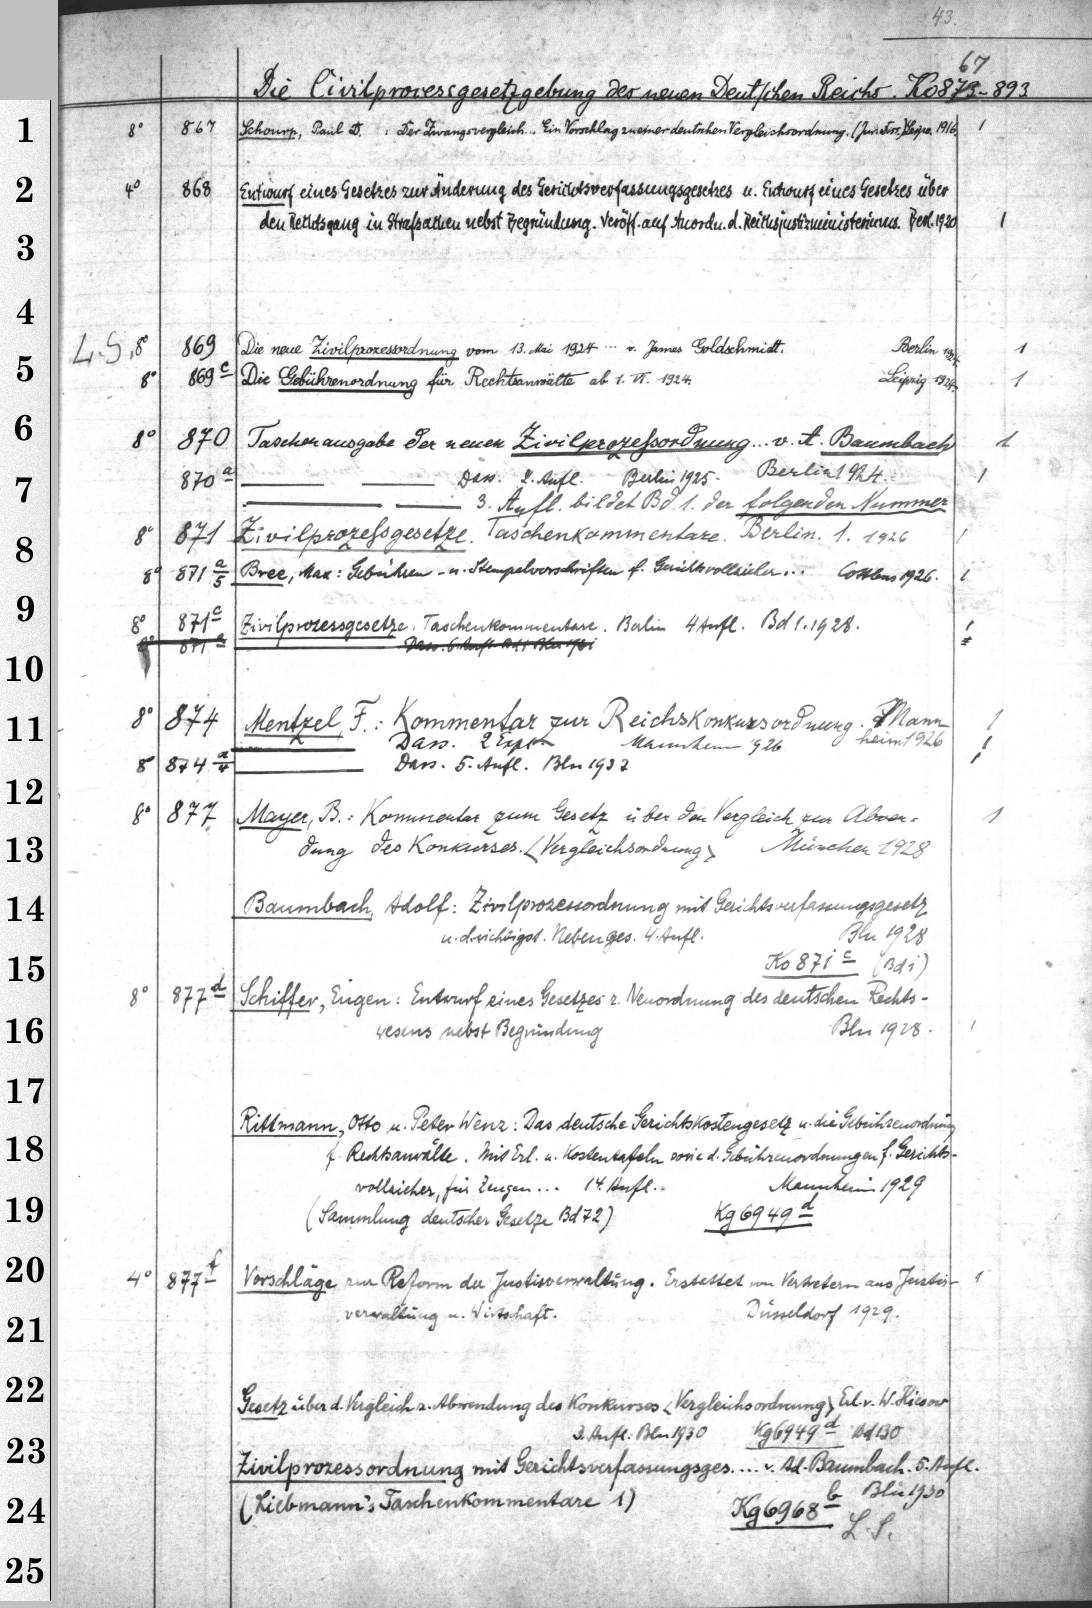 43.
67
Die Civilprocessgesetzgebung des neuen Deutschen Reichs. Ko 873-893
1 8° 867 Schourp, Paul D. : Der Zwangsvergleich.. Ein Vorschlag zu einer deutschen Vergleichsordnung. (Jur. Diss.) Leipz. 1916. 1
2 4° 868 Entwurf eines Gesetzes zur Änderung des Gerichtsverfassungsgesetzes u. Entwurf eines Gesetzes über
den Rechtsgang in Strafsachen nebst Begründung. Veröff. auf Anordn. d. Reichsjustizministeriums. Berl. 1920 1
3
4
L.S. 8° 869 Die neue Zivilprozessordnung vom 13. Mai 1924 ... v. James Goldschmidt. Berlin 1924. 1
5 8° 869 c Die Gebührenordnung für Rechtsanwälte ab 1. VI. 1924. Leipzig 1924. 1
6 8° 870 Taschenausgabe der neuen Zivilprozeßordnung... v. A. Baumbach 1
7 870 a Dass. 2. Aufl. Berlin 1925. Berlin 1924. 1
3. Aufl. bildet Bd 1. der folgenden Nummer
8 8° 871 Zivilprozeßgesetze. Taschenkommentare. Berlin. 1. 1926 1
8° 871 a/5 Bree, Max: Gebühren- u. Stempelvorschriften f. Gerichtsvollzieher... Cottbus 1926. 1
9 8° 871 c Zivilprozessgesetze. Taschenkommentare. Berlin 4 Aufl. Bd 1. 1928. 1
8° 871 e Dass. 6 Aufl. Bd 1 Bln 1931
10
11 8° 874 Mentzel, F.: Kommentar zur Reichskonkursordnung. Mann-
heim 1926 1
Dass. 2 Expl. Mannheim 1926 1
8° 874 a/4 Dass. 5. Aufl. Bln 1937 1
12 8° 877 Mayer, B.: Kommentar zum Gesetz über den Vergleich zur Abwen- 1
13 dung des Konkurses. <Vergleichsordnung> München 1928
14 Baumbach, Adolf: Zivilprozessordnung mit Gerichtsverfassungsgesetz
u. d. wichtigst. Nebenges. 4. Aufl. Bln 1928
15 Ko 871 c (Bd 1)
8° 877 d Schiffer, Eugen: Entwurf eines Gesetzes z. Neuordnung des deutschen Rechts-
16 wesens nebst Begründung Bln 1928. 1
17
Rittmann, Otto u. Peter Wenz: Das deutsche Gerichtskostengesetz u. die Gebührenordnung
18 f. Rechtsanwälte. Mit Erl. u. Kostentafeln sowie d. Gebührenordnungen f. Gerichts-
vollzieher, für Zeugen... 14. Aufl.. Mannheim 1929
19 (Sammlung deutscher Gesetze Bd 72) Kg 6949 d
20 4° 877 f Vorschläge zur Reform der Justizverwaltung. Erstattet von Vertretern aus Justiz- 1
21 verwaltung u. Wirtschaft. Düsseldorf 1929.
22 Gesetz über d. Vergleich z. Abwendung des Konkurses <Vergleichsordnung> Erl. v. W. Kiesow
3. Aufl. Bln 1930 Kg 6949 d Bd 130
23 Zivilprozessordnung mit Gerichtsverfassungsges.... v. Ad. Baumbach. 5. Aufl.
24 (Liebmann's Taschenkommentare 1) Kg 6968 b Bln 1930
L.S.
25